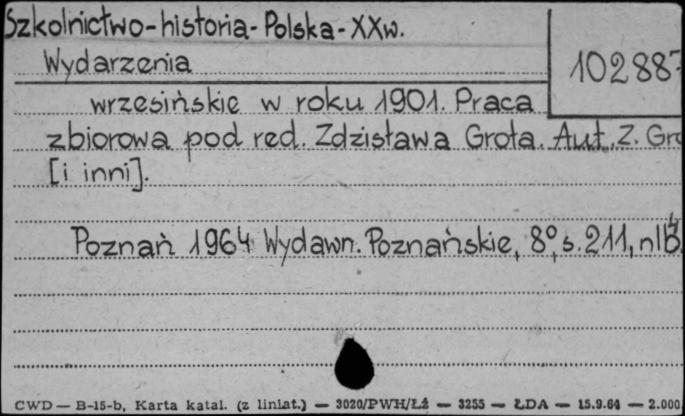 Szkolnictwo-historia-Polska-XXw.
Wydarzenia
102887
wrzesińskie w roku 1901. Praca
zbiorowa pod red. Zdzisława Grota. Aut. Z. Gro
[i inni].
Poznań 1964 Wydawn. Poznańskie, 8°, s. 211, nlb
CWD — B-15-b, Karta katal. (z liniat.) — 3020/PWH/Łź — 3255 — ŁDA — 15.9.64 — 2.000